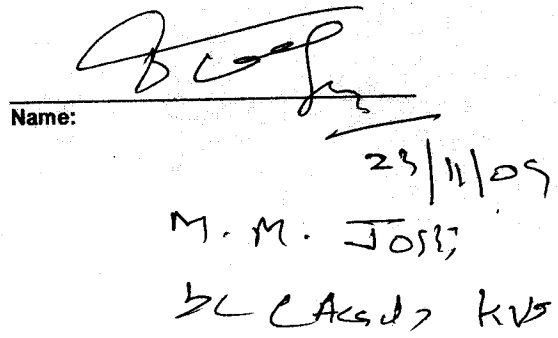 Name:
23/11/09
M. M. Joshi
DC (Acad) KVS